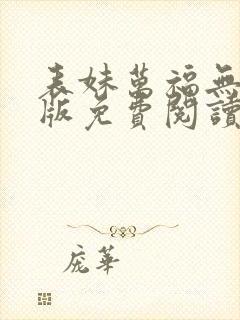 表妹萬福無
版免費閱讀
庞華